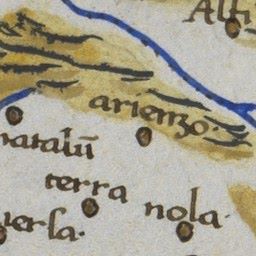 Alfi
arienzo.
natalū
terra
nola.
uersa.